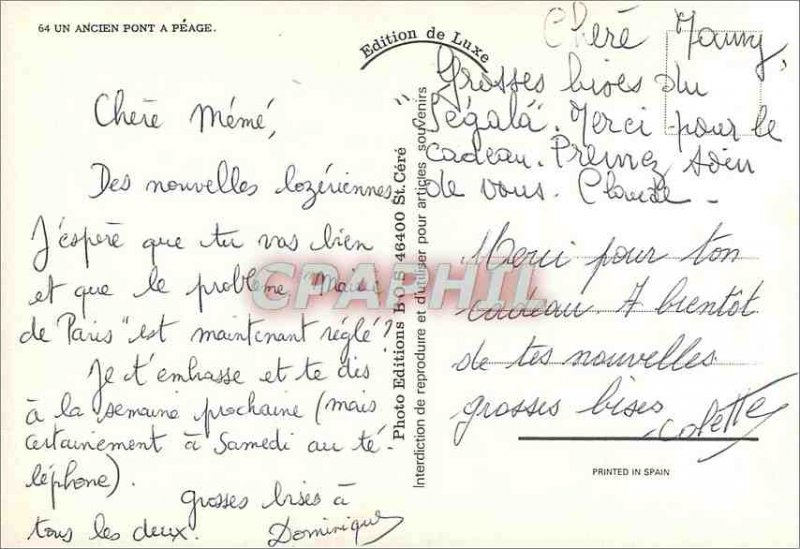 64 UN ANCIEN PONT A PÉAGE.
Chère Mémé,
Des nouvelles lozériennes
J'espère que tu vas bien
et que le problème "Mairie
de Paris" est maintenant réglé?
Je t'embrasse et te dis
à la semaine prochaine (mais
certainement à Samedi au té-
léphone).
Grosses bises à
tous les deux. Dominique
Edition de Luxe
Photo Editions B O S 46400 St. Céré
Interdiction de reproduire et d'utiliser pour articles souvenirs
Chère
Grosses bises du
"Ségala". Merci pour le
cadeau. Prenez soin
de vous. Claude
Merci pour ton
cadeau. A bientôt
de tes nouvelles
grosses bises
Colette
PRINTED IN SPAIN
CPAPHIL